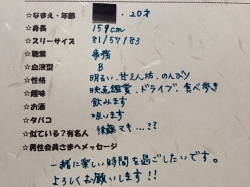 ☆なまえ・年齢 ・20才
☆身長 159cm
☆スリーサイズ 81/57/83
☆職業 事務
☆血液型 B
☆性格 明るい、甘えん坊、のんびり
☆趣味 映画鑑賞、ドライブ、食べ歩き
☆お酒 飲みます
☆タバコ 吸います
☆似ている?有名人 後藤マキ…??
☆男性会員さまへメッセージ
一緒に楽しい時間を過ごしたいです。
よろしくお願いします!!